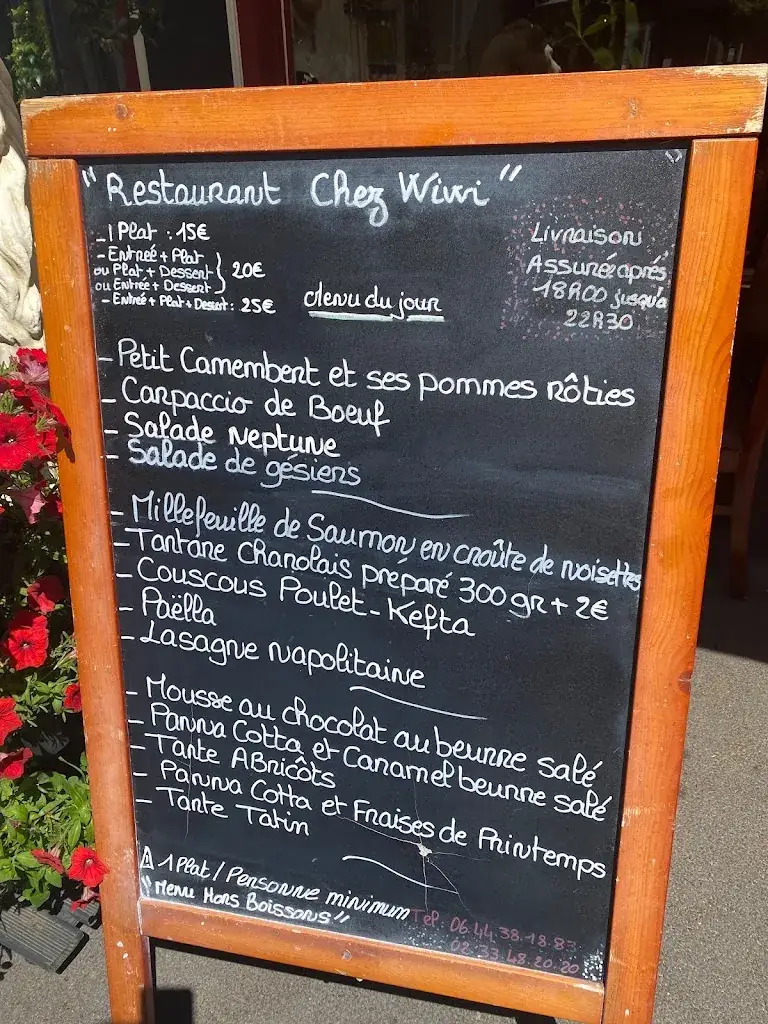 "Restaurant Chez Wiwi"
- 1 Plat : 15€
- Entreé + Plat
ou Plat + Dessert } 20€
ou Entreé + Dessert
- Entreé + Plat + Dessert : 25€
Menu du jour
Livraison
Assurée après
18h00 jusqu'a
22h30
- Petit Camembert et ses pommes rôties
- Carpaccio de Boeuf
- Salade Neptune
- Salade de gésiers
- Millefeuille de Saumon en croûte de noisettes
- Tartare Charolais préparé 300gr + 2€
- Couscous Poulet - Kefta
- Paëlla
- Lasagne Napolitaine
- Mousse au chocolat au beurre salé
- Panna Cotta et Caramel beurre salé
- Tarte Abricôts
- Panna Cotta et Fraises de Printemps
- Tarte Tatin
⚠ 1 Plat / Personne minimum
"Menu Hors Boissons"
Tel : 06.44.38.18.83
02.33.48.20.20